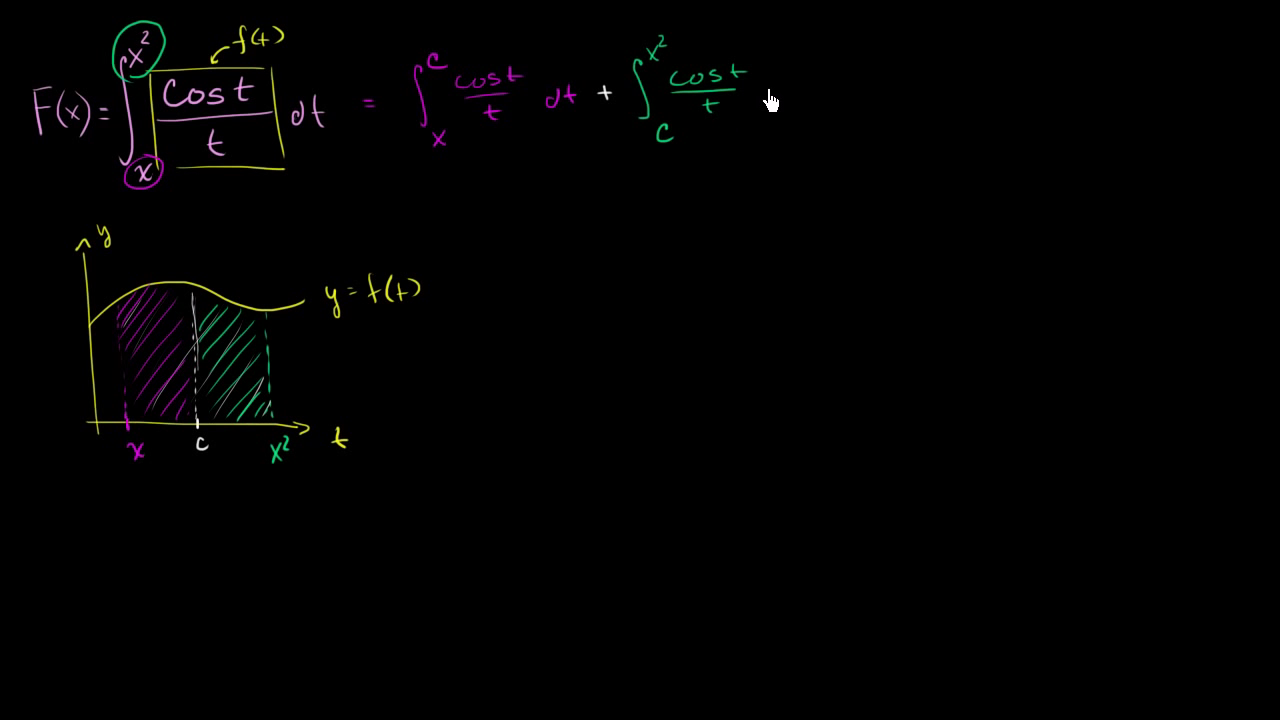 f(t)
F(x) = ∫_x^{x²} cos t / t dt = ∫_x^c cos t / t dt + ∫_c^{x²} cos t / t
y
y = f(t)
x c x² t